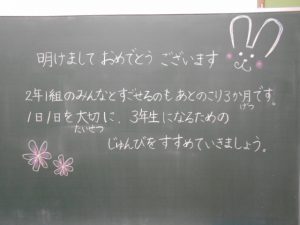 明けまして おめでとう ございます
2年1組のみんなとすごせるのも あとのこり3か月です。
げつ
1日1日を大切に、3年生になるための
たいせつ
じゅんびをすすめていきましょう。